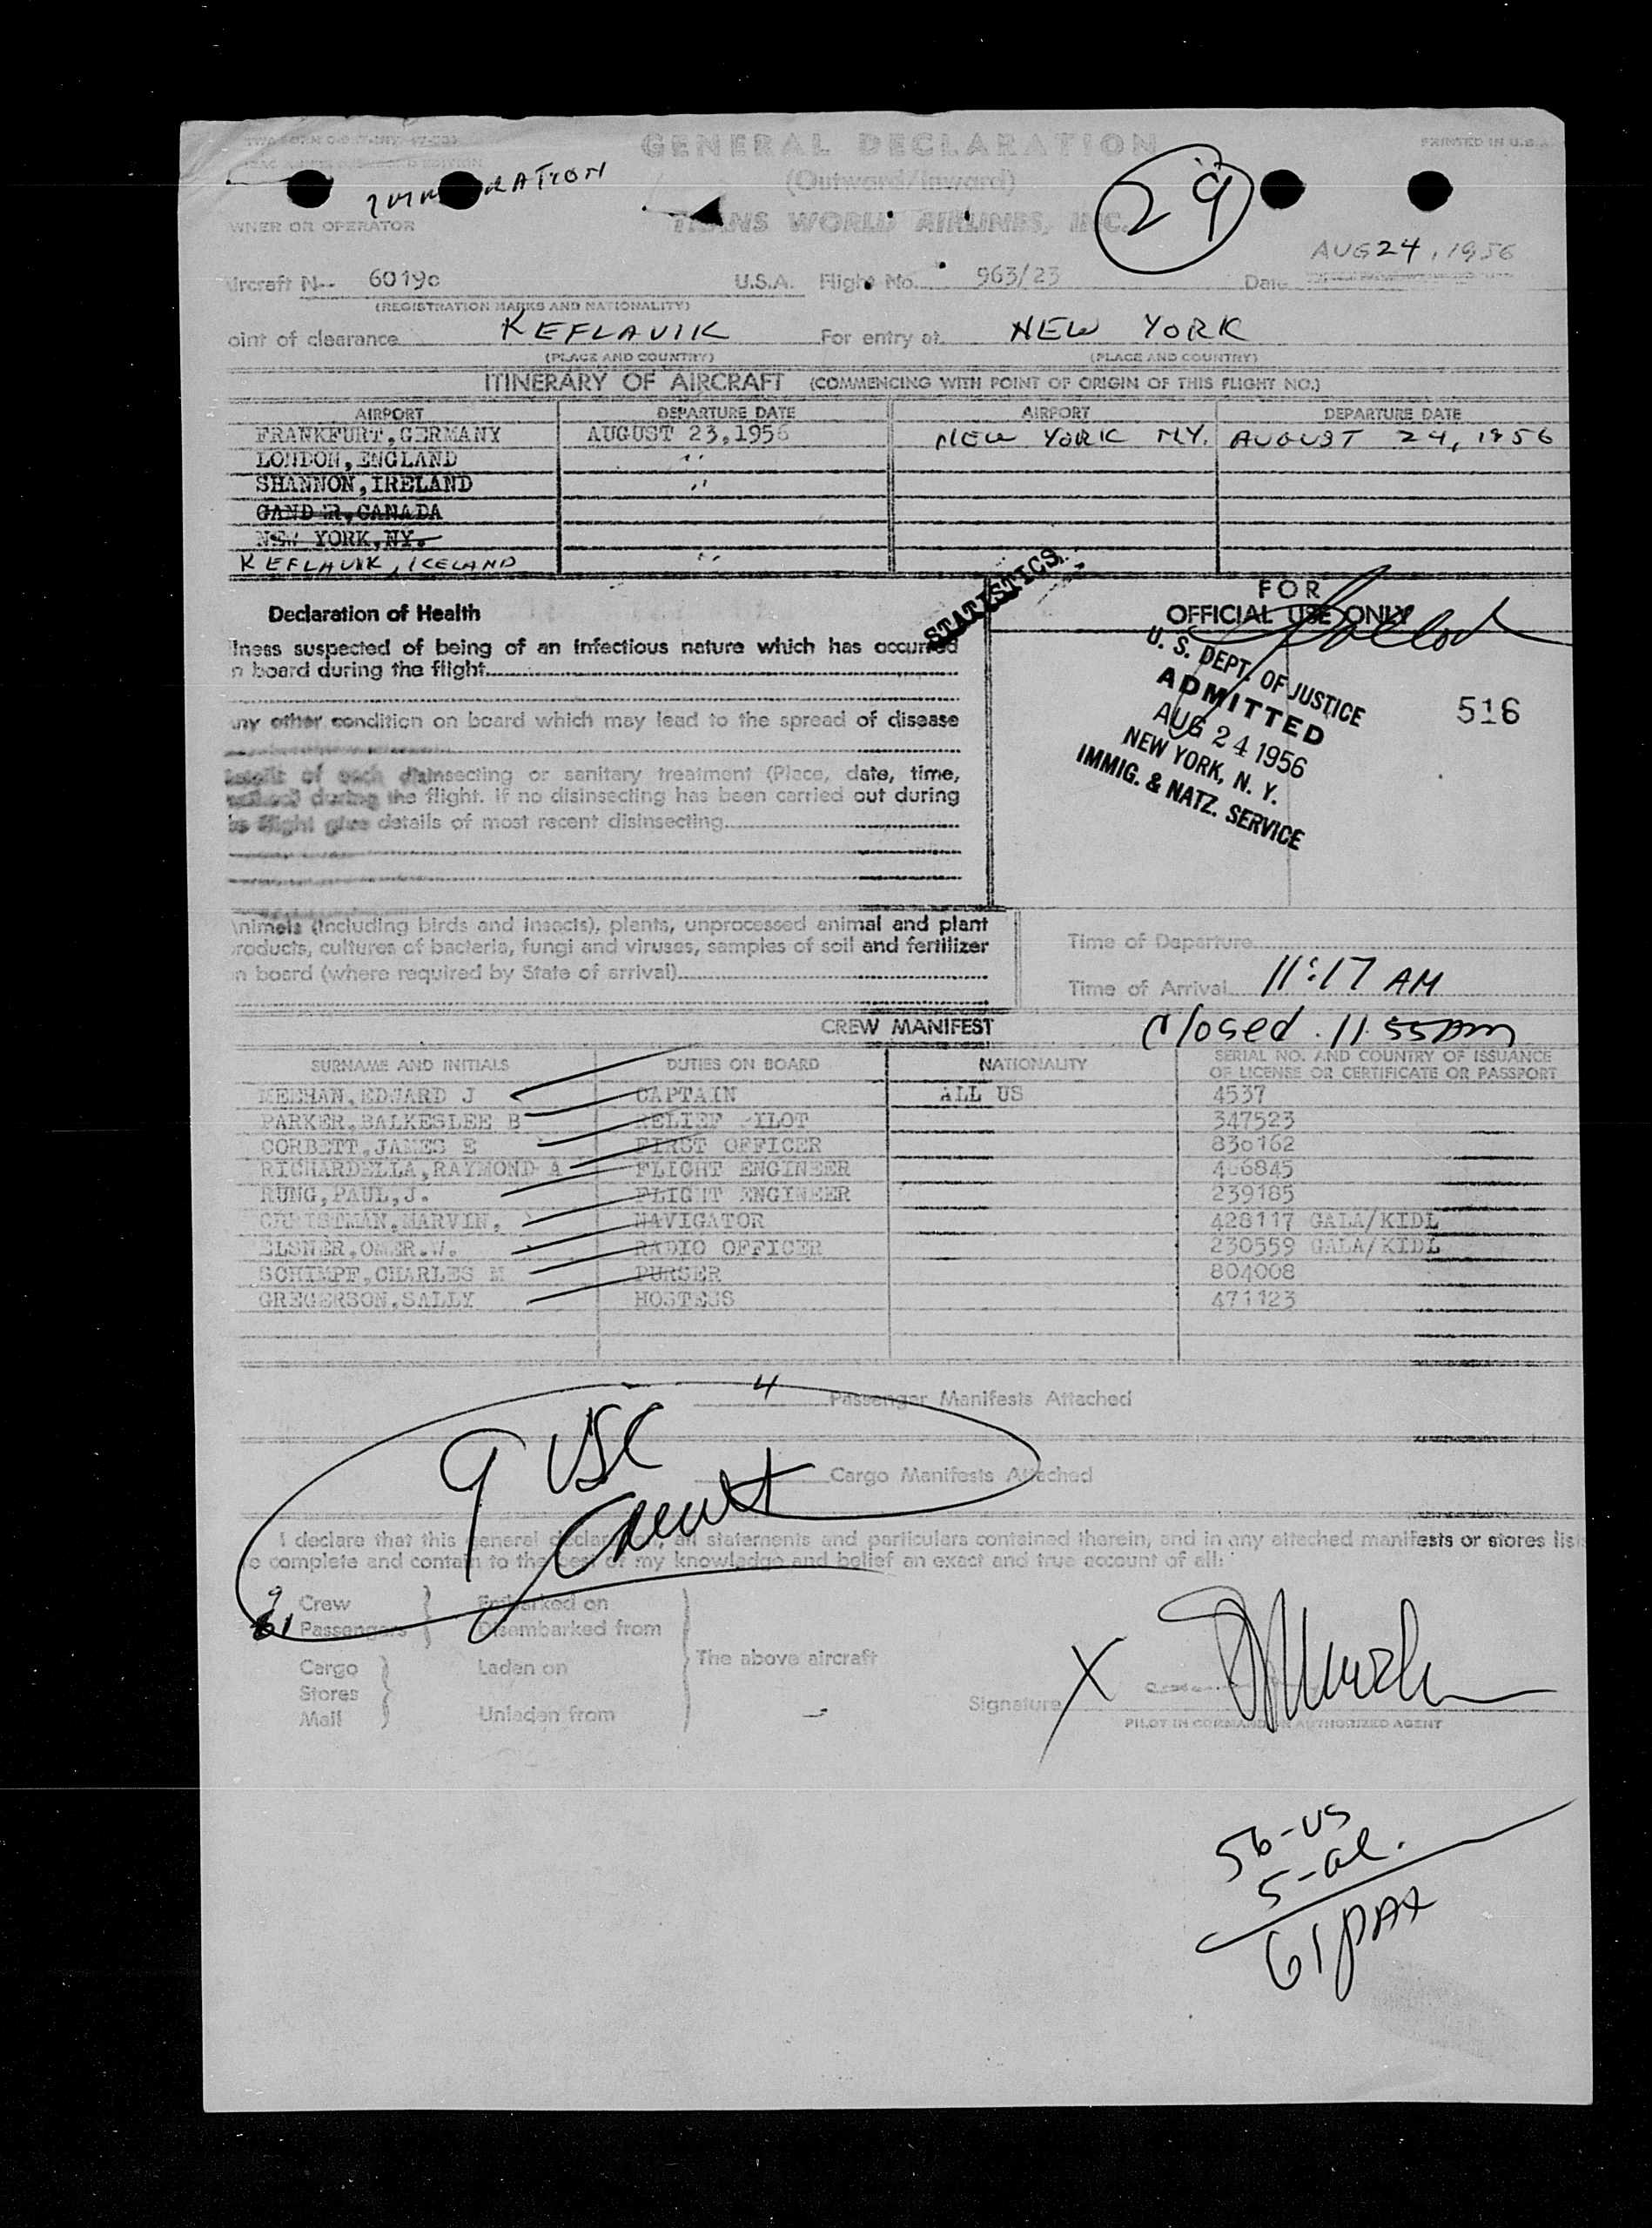 GENERAL DECLARATION
PRINTED IN U.S.A.
(Outward/Inward)
29
TRANS WORLD AIRLINES, INC.
WNER OR OPERATOR
AUG 24, 1956
ircraft N-- 6019c U.S.A. Flight No. 963/23 Date
(REGISTRATION MARKS AND NATIONALITY)
oint of clearance KEFLAVIK For entry at NEW YORK
(PLACE AND COUNTRY) (PLACE AND COUNTRY)
ITINERARY OF AIRCRAFT (COMMENCING WITH POINT OF ORIGIN OF THIS FLIGHT NO.)
AIRPORT DEPARTURE DATE AIRPORT DEPARTURE DATE
FRANKFURT, GERMANY AUGUST 23, 1956 NEW YORK N.Y. AUGUST 24, 1956
LONDON, ENGLAND "
SHANNON, IRELAND "
GANDER, CANADA
NEW YORK, NY.
KEFLAVIK, ICELAND "
STATISTICS
FOR
OFFICIAL USE ONLY
Declaration of Health
lness suspected of being of an infectious nature which has occurred
n board during the flight
ny other condition on board which may lead to the spread of disease
U. S. DEPT. OF JUSTICE
ADMITTED
AUG 24 1956
NEW YORK, N. Y.
IMMIG. & NATZ. SERVICE
516
details of each disinsecting or sanitary treatment (Place, date, time,
method) during the flight. If no disinsecting has been carried out during
he flight give details of most recent disinsecting
nimals (Including birds and insects), plants, unprocessed animal and plant
roducts, cultures of bacteria, fungi and viruses, samples of soil and fertilizer
n board (where required by State of arrival)
Time of Departure
Time of Arrival 11:17 AM
Closed 11 55 am
CREW MANIFEST
SURNAME AND INITIALS DUTIES ON BOARD NATIONALITY SERIAL NO. AND COUNTRY OF ISSUANCE
OF LICENSE OR CERTIFICATE OR PASSPORT
MEEHAN, EDWARD J CAPTAIN ALL US 4537
PARKER, BALKESLEE B RELIEF PILOT 347523
CORBETT, JAMES E FIRST OFFICER 830162
RICHARDELLA, RAYMOND A FLIGHT ENGINEER 406845
RUNG, PAUL, J. FLIGHT ENGINEER 239185
CHRISTMAN, MARVIN, NAVIGATOR 428117 GALA/KIDL
ELSNER, OMER.W. RADIO OFFICER 230559 GALA/KIDL
SCHIMPF, CHARLES M PURSER 804008
GREGERSON, SALLY HOSTESS 471123
4 Passenger Manifests Attached
9 USC
Cargo Manifests Attached
I declare that this general declaration, all statements and particulars contained therein, and in any attached manifests or stores lis
e complete and contain to the best of my knowledge and belief an exact and true account of all:
9 Crew Embarked on
61 Passengers Disembarked from
The above aircraft
Cargo Laden on
Stores
Mail Unladen from
Signature X
PILOT IN COMMAND OR AUTHORIZED AGENT
56-US
5-al.
61 PAX